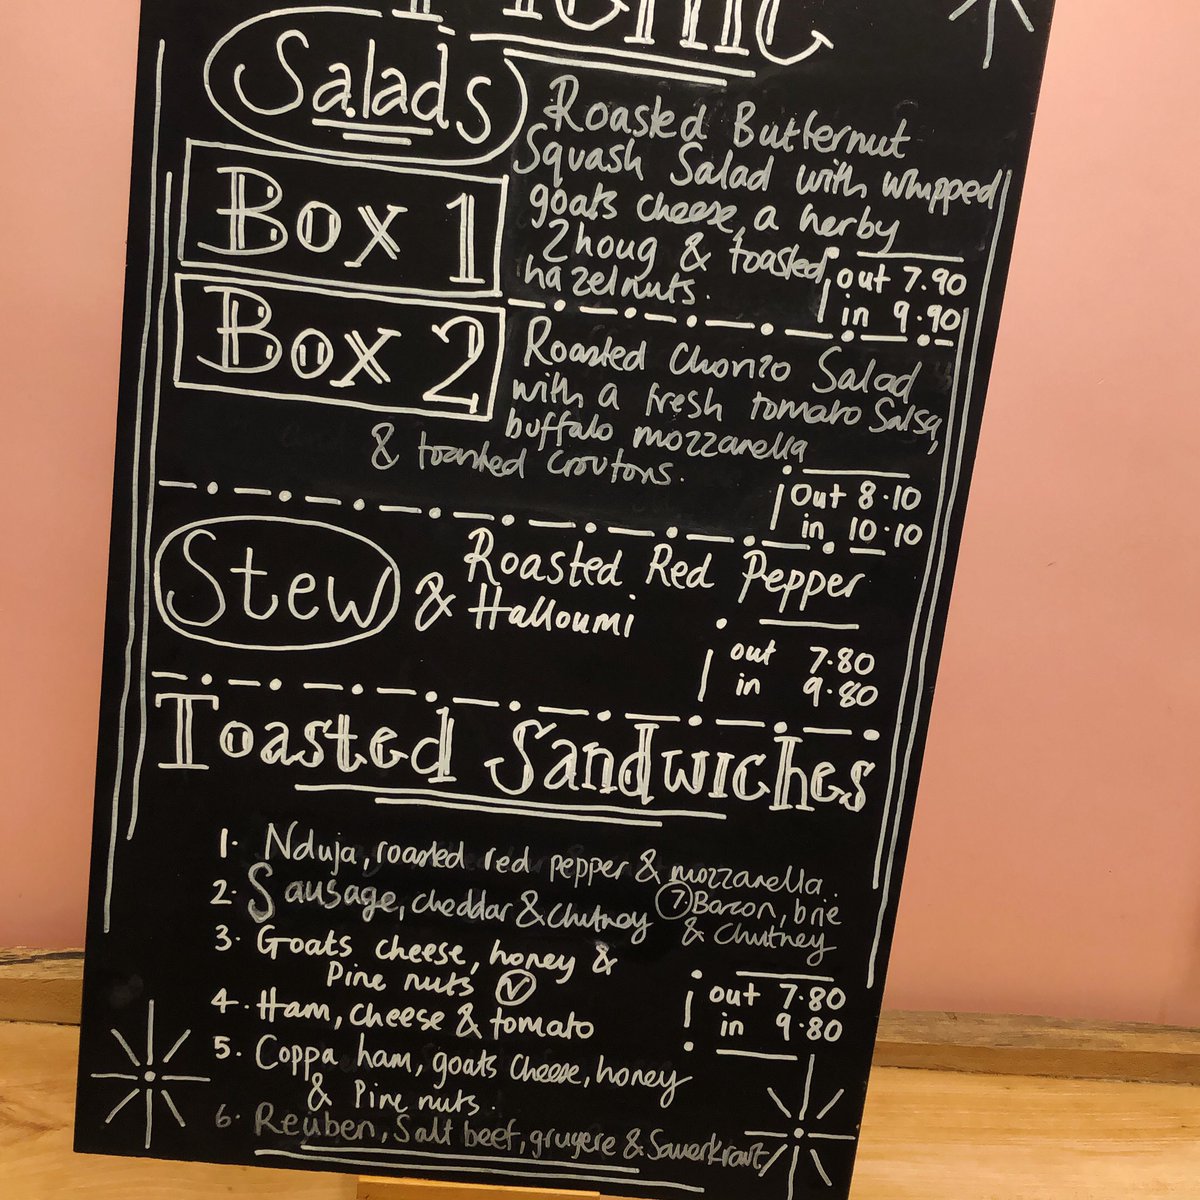 Salads
Box 1
Roasted Butternut
Squash Salad with whipped
goats cheese, a herby
Zhoug & toasted
hazelnuts.
out 7.90
in 9.90
Box 2
Roasted Chorizo Salad
with a fresh tomato Salsa,
buffalo mozzarella
& toasted croutons.
Out 8.10
in 10.10
Stew
Roasted Red Pepper
& Halloumi
out 7.80
in 9.80
Toasted Sandwiches
1. Nduja, roasted red pepper & mozzarella.
2. Sausage, cheddar & Chutney
3. Goats cheese, honey &
Pine nuts V
4. Ham, cheese & tomato
5. Coppa ham, goats cheese, honey
& Pine nuts.
6. Reuben, Salt beef, gruyere & Sauerkraut
7. Bacon, brie
& Chutney
out 7.80
in 9.80